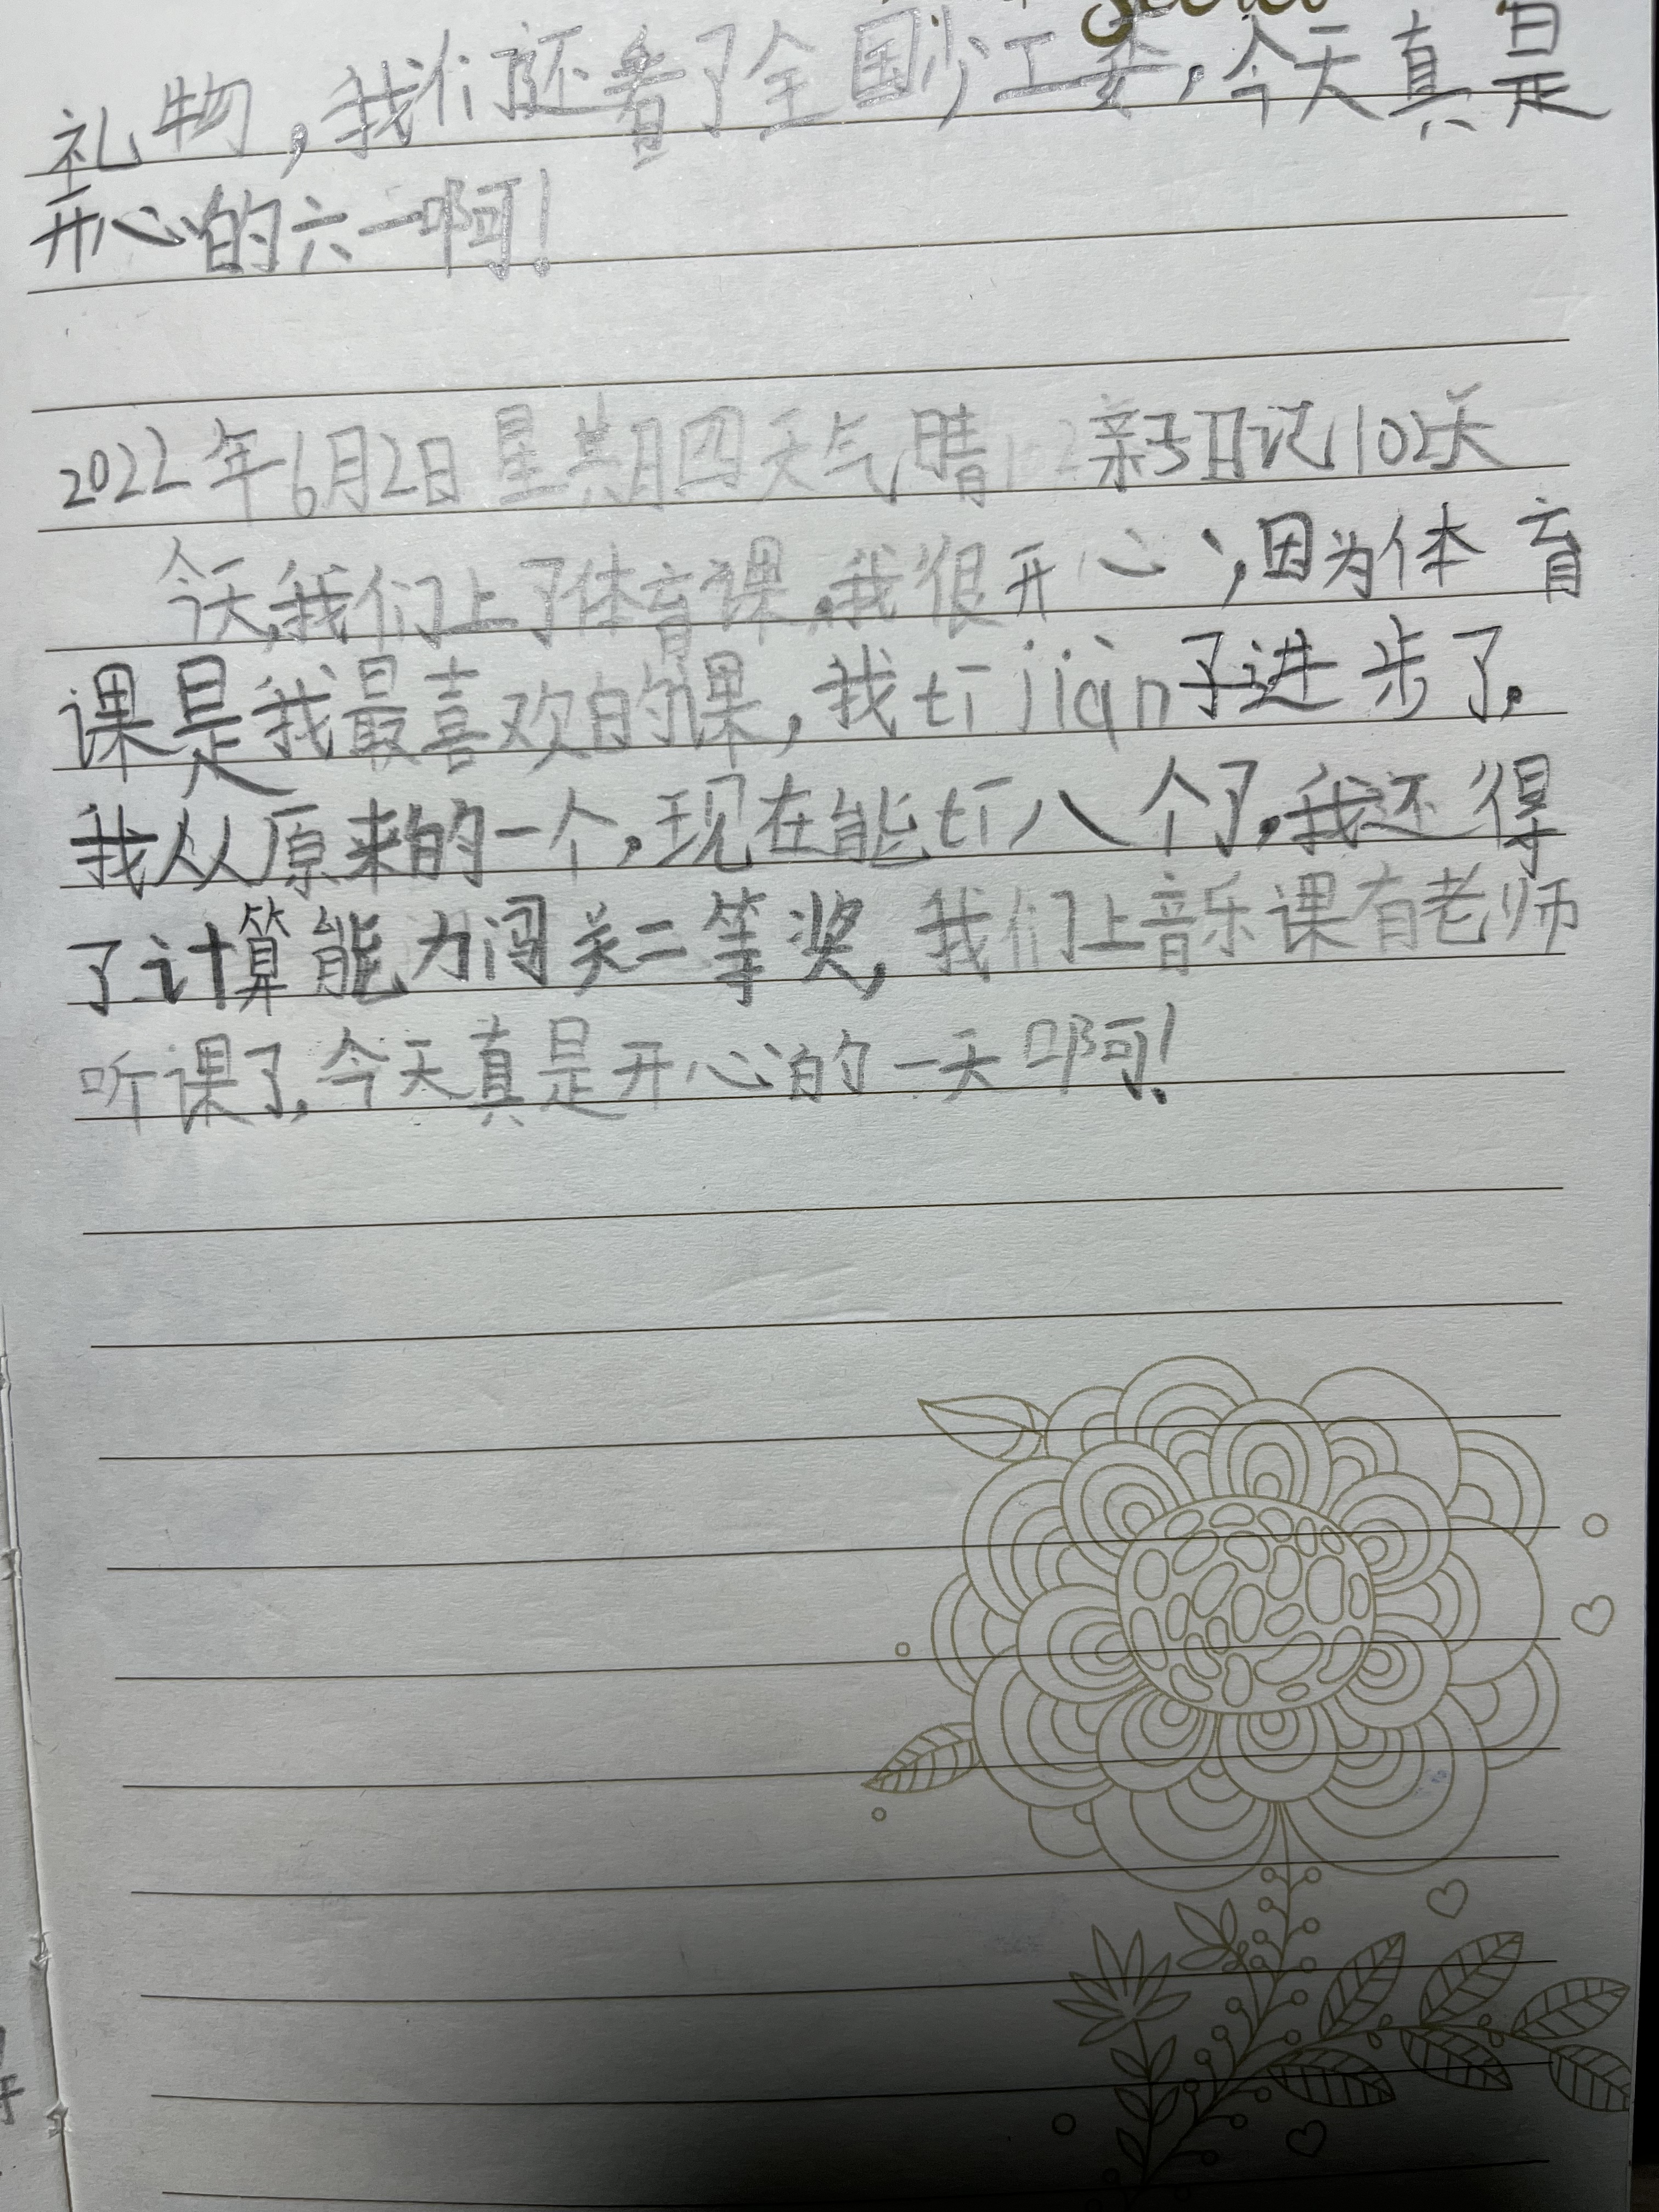 礼物，我们还看了全国少工委，今天真是
开心的六一啊！
2022年6月2日星期四天气晴 亲子日记102天
今天，我们上了体育课。我很开心，因为体育
课是我最喜欢的课，我tī jiàn子进步了。
我从原来的一个，现在能tī八个了，我还得
了计算能力闯关二等奖，我们上音乐课有老师
听课了，今天真是开心的一天啊！